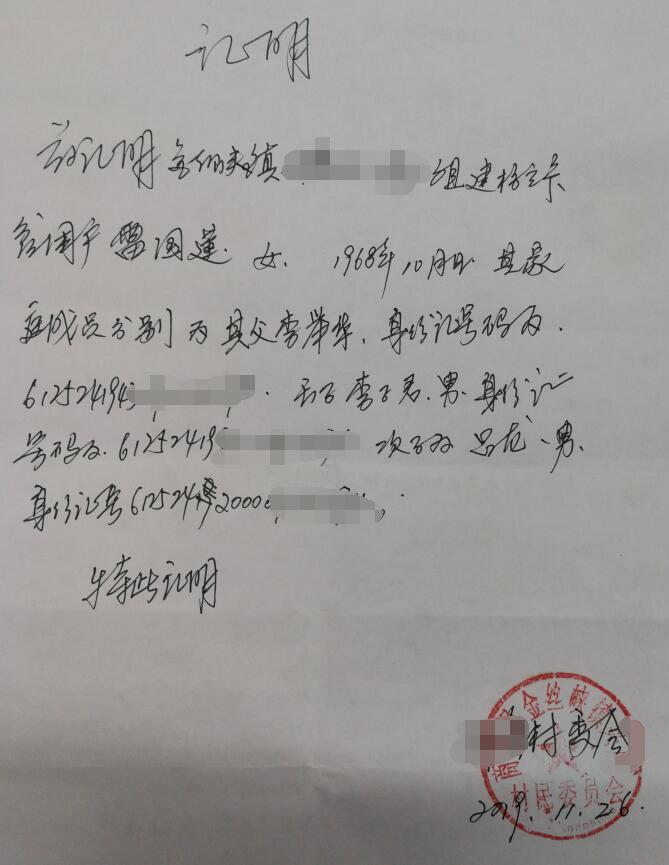 证明
兹证明金丝峡镇 组建档立卡
贫困户雷国莲.女. 1968年10月 日 其家
庭成员分别为其父李举华,身份证号码为.
612524194 . 长子李子君.男.身份证
号码为.61252419 次子 吕龙、男.
身份证号6125242000 .
特此证明
商 金丝峡镇
村委会
村民委员会
2019.11.26.